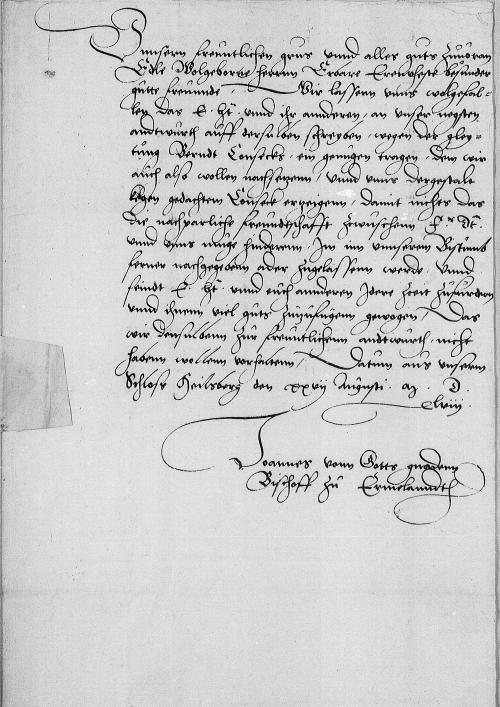 Unnsern freuntlichen grus vnnd alles guts zuuoran
Edle Wolgeborne herrnn Erbare Erenveste besunder
gutte freunde. Wir lassenn vnns wolgefal-
len das E. Ht. vnnd ihr anderen, an vnser negsten
andtwurth auff derselben schreyben, wegen der gley-
tung Berndt Conseks, ein genugen tragen, dem wir
auch also wollen nachsetzenn, vnnd vnns dergestalt
kegen gedachtem Conseck ertzeigenn, damit nichts das
die nachparliche freundtschafft zwuschenn F. Dt.
vnnd vnns muge hindernn, In im vnnserem Bistumb
ferner nachgegebenn ader zugelassenn werde, Vnnd
seindt E. Ht. vnnd euch anderen Idere zeit zufurdern
vnnd ihnenn viel guts zuzufugenn gewogen, Das
wir denselbenn zur freuntlichenn andtwurth, nicht
habenn wollenn vorhaltenn, Datum aus vnserm
Schloss Heilsberg den xxvij Augusti. A. D.
xlviij.
Joannes vonn Gotts gnadenn
Bischoff zu Ermelanndth